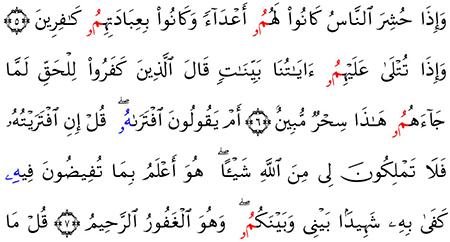 وَإِذَا حُشِرَ ٱلنَّاسُ كَانُوا۟ لَهُمُۥٓ أَعْدَآءً وَكَانُوا۟ بِعِبَادَتِهِمُۥ كَـٰفِرِينَ ﴿٥﴾
وَإِذَا تُتْلَىٰ عَلَيْهِمُۥٓ ءَايَـٰتُنَا بَيِّنَـٰتٍ قَالَ ٱلَّذِينَ كَفَرُوا۟ لِلْحَقِّ لَمَّا
جَآءَهُمُۥ هَـٰذَا سِحْرٌ مُّبِينٌ ﴿٦﴾ أَمْ يَقُولُونَ ٱفْتَرَىٰهُۥ ۖ قُلْ إِنِ ٱفْتَرَيْتُهُۥ
فَلَا تَمْلِكُونَ لِى مِنَ ٱللَّهِ شَيْـًٔا ۖ هُوَ أَعْلَمُ بِمَا تُفِيضُونَ فِيهِۦ
كَفَىٰ بِهِۦ شَهِيدًۢا بَيْنِى وَبَيْنَكُمُۥ ۖ وَهُوَ ٱلْغَفُورُ ٱلرَّحِيمُ ﴿٧﴾ قُلْ مَا